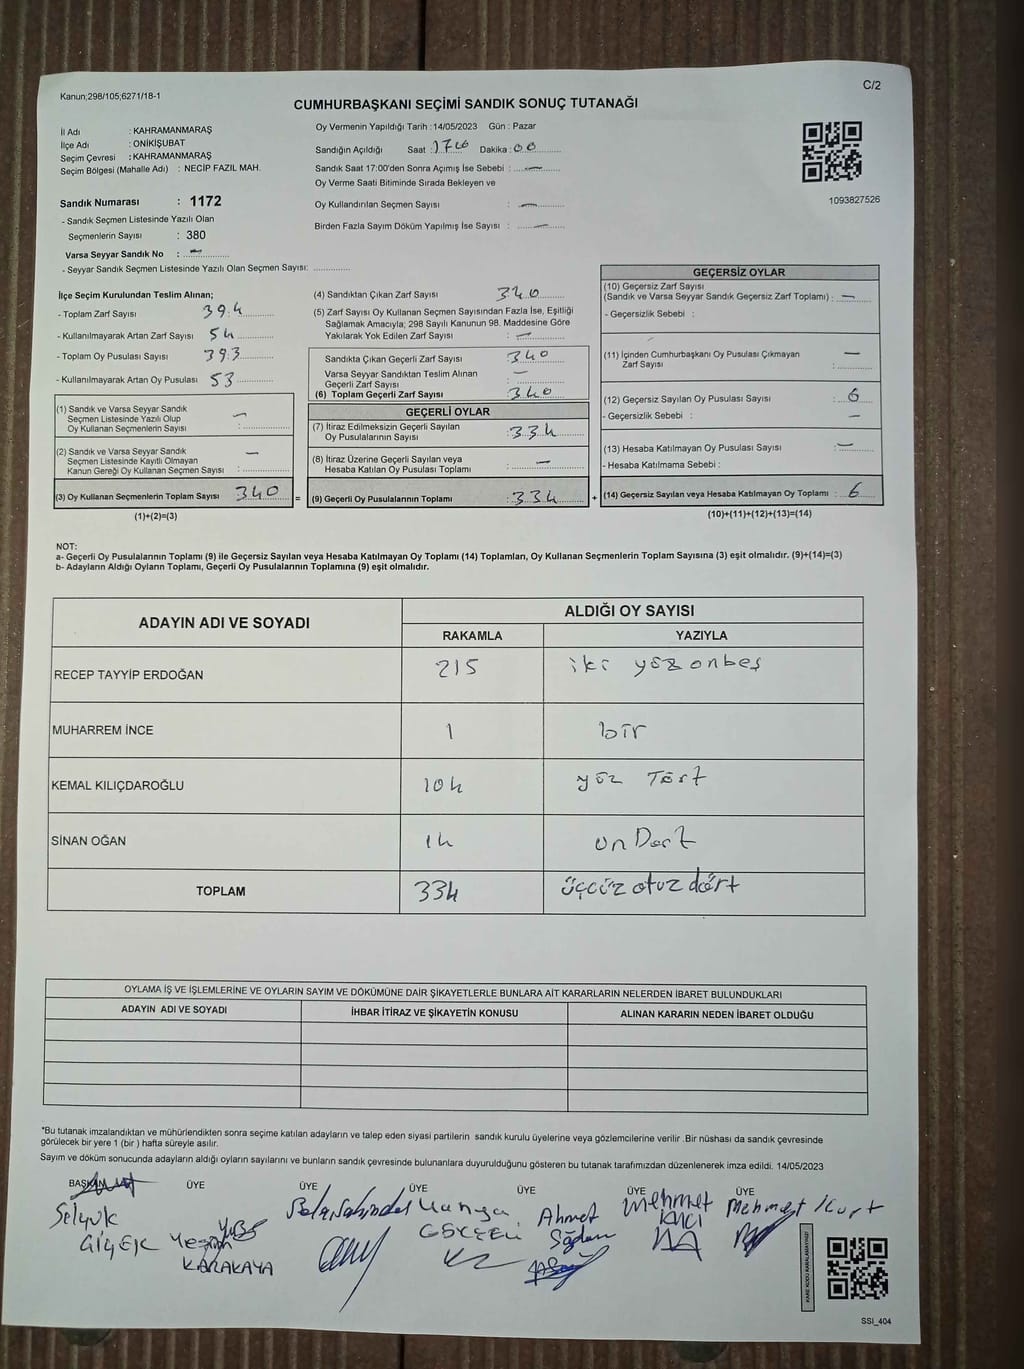 Kanun;298/105;6271/18-1
C/2
CUMHURBAŞKANI SEÇİMİ SANDIK SONUÇ TUTANAĞI
İl Adı : KAHRAMANMARAŞ
İlçe Adı : ONİKİŞUBAT
Seçim Çevresi : KAHRAMANMARAŞ
Seçim Bölgesi (Mahalle Adı) : NECİP FAZIL MAH.
Sandık Numarası : 1172
- Sandık Seçmen Listesinde Yazılı Olan
Seçmenlerin Sayısı : 380
Varsa Seyyar Sandık No : —
- Seyyar Sandık Seçmen Listesinde Yazılı Olan Seçmen Sayısı:
Oy Vermenin Yapıldığı Tarih :14/05/2023 Gün : Pazar
Sandığın Açıldığı Saat : Dakika : 00
Sandık Saat 17:00'den Sonra Açımış İse Sebebi : —
Oy Verme Saati Bitiminde Sırada Bekleyen ve
Oy Kullandırılan Seçmen Sayısı : —
Birden Fazla Sayım Döküm Yapılmış İse Sayısı : —
1093827526
İlçe Seçim Kurulundan Teslim Alınan;
- Toplam Zarf Sayısı 394
- Kullanılmayarak Artan Zarf Sayısı 54
- Toplam Oy Pusulası Sayısı 393
- Kullanılmayarak Artan Oy Pusulası 53
(1) Sandık ve Varsa Seyyar Sandık
Seçmen Listesinde Yazılı Olup
Oy Kullanan Seçmenlerin Sayısı : —
(2) Sandık ve Varsa Seyyar Sandık
Seçmen Listesinde Kayıtlı Olmayan
Kanun Gereği Oy Kullanan Seçmen Sayısı : —
(3) Oy Kullanan Seçmenlerin Toplam Sayısı 340 =
(1)+(2)=(3)
(4) Sandıktan Çıkan Zarf Sayısı 340
(5) Zarf Sayısı Oy Kullanan Seçmen Sayısından Fazla İse, Eşitliği
Sağlamak Amacıyla; 298 Sayılı Kanunun 98. Maddesine Göre
Yakılarak Yok Edilen Zarf Sayısı : —
Sandıkta Çıkan Geçerli Zarf Sayısı : 340
Varsa Seyyar Sandıktan Teslim Alınan
Geçerli Zarf Sayısı : —
(6) Toplam Geçerli Zarf Sayısı : 340
GEÇERLİ OYLAR
(7) İtiraz Edilmeksizin Geçerli Sayılan
Oy Pusulalarının Sayısı : 334
(8) İtiraz Üzerine Geçerli Sayılan veya
Hesaba Katılan Oy Pusulası Toplamı : —
(9) Geçerli Oy Pusulalarının Toplamı : 334 +
GEÇERSİZ OYLAR
(10) Geçersiz Zarf Sayısı
(Sandık ve Varsa Seyyar Sandık Geçersiz Zarf Toplamı) : —
- Geçersizlik Sebebi :
(11) İçinden Cumhurbaşkanı Oy Pusulası Çıkmayan
Zarf Sayısı : —
(12) Geçersiz Sayılan Oy Pusulası Sayısı : 6
- Geçersizlik Sebebi : —
(13) Hesaba Katılmayan Oy Pusulası Sayısı : —
- Hesaba Katılmama Sebebi :
(14) Geçersiz Sayılan veya Hesaba Katılmayan Oy Toplamı : 6
(10)+(11)+(12)+(13)=(14)
NOT:
a- Geçerli Oy Pusulalarının Toplamı (9) ile Geçersiz Sayılan veya Hesaba Katılmayan Oy Toplamı (14) Toplamları, Oy Kullanan Seçmenlerin Toplam Sayısına (3) eşit olmalıdır. (9)+(14)=(3)
b- Adayların Aldığı Oyların Toplamı, Geçerli Oy Pusulalarının Toplamına (9) eşit olmalıdır.
ADAYIN ADI VE SOYADI ALDIĞI OY SAYISI
RAKAMLA YAZIYLA
RECEP TAYYİP ERDOĞAN 215 iki yözonbeş
MUHARREM İNCE 1 bir
KEMAL KILIÇDAROĞLU 104 yöz Tört
SİNAN OĞAN 14 onDort
TOPLAM 334 üçcüz otuz dört
OYLAMA İŞ VE İŞLEMLERİNE VE OYLARIN SAYIM VE DÖKÜMÜNE DAİR ŞİKAYETLERLE BUNLARA AİT KARARLARIN NELERDEN İBARET BULUNDUKLARI
ADAYIN ADI VE SOYADI İHBAR İTİRAZ VE ŞİKAYETİN KONUSU ALINAN KARARIN NEDEN İBARET OLDUĞU
*Bu tutanak imzalandıktan ve mühürlendikten sonra seçime katılan adayların ve talep eden siyasi partilerin sandık kurulu üyelerine veya gözlemcilerine verilir .Bir nüshası da sandık çevresinde
görülecek bir yere 1 (bir ) hafta süreyle asılır.
Sayım ve döküm sonucunda adayların aldığı oyların sayılarını ve bunların sandık çevresinde bulunanlara duyurulduğunu gösteren bu tutanak tarafımızdan düzenlenerek imza edildi. 14/05/2023
BAŞKAN ÜYE ÜYE ÜYE ÜYE ÜYE ÜYE
Selçuk Ahmet Mehmet Mehmet Kurt
KARAKAYA
KARE KODU KARALAMAYINIZ!
SSI_404